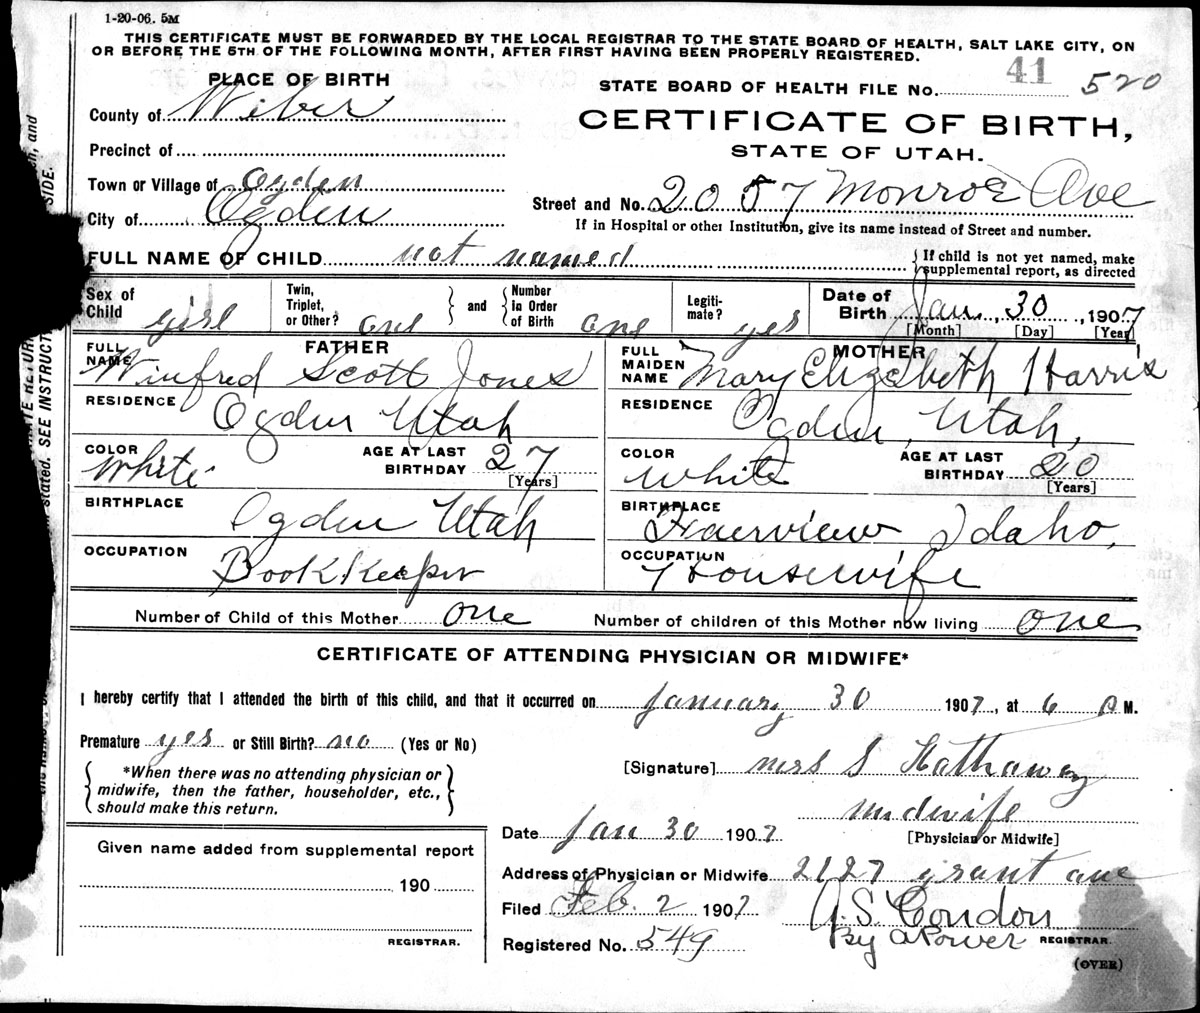 1-20-06. 5M
THIS CERTIFICATE MUST BE FORWARDED BY THE LOCAL REGISTRAR TO THE STATE BOARD OF HEALTH, SALT LAKE CITY, ON
OR BEFORE THE 5TH OF THE FOLLOWING MONTH, AFTER FIRST HAVING BEEN PROPERLY REGISTERED.
PLACE OF BIRTH
41
STATE BOARD OF HEALTH FILE No. 520
County of Weber
CERTIFICATE OF BIRTH,
Precinct of
STATE OF UTAH.
Town or Village of Ogden
City of Ogden
Street and No. 2057 Monroe Ave
If in Hospital or other Institution, give its name instead of Street and number.
FULL NAME OF CHILD not named
If child is not yet named, make
supplemental report, as directed
Sex of Child girl
Twin, Triplet, or Other? one
and
Number in Order of Birth one
Legiti-mate? yes
Date of Birth Jan. 30, 1907
[Month] [Day] [Year]
FATHER
FULL NAME Winfred Scott Jones
MOTHER
FULL MAIDEN NAME Mary Elizebeth Harris
RESIDENCE Ogden Utah
RESIDENCE Ogden, Utah,
COLOR White
AGE AT LAST BIRTHDAY 27
[Years]
COLOR White
AGE AT LAST BIRTHDAY 20
[Years]
BIRTHPLACE Ogden Utah
BIRTHPLACE Fairview Idaho,
OCCUPATION BookKeeper
OCCUPATION Housewife
Number of Child of this Mother one
Number of children of this Mother now living one
CERTIFICATE OF ATTENDING PHYSICIAN OR MIDWIFE*
I hereby certify that I attended the birth of this child, and that it occurred on January 30 1907, at 6 M.
Premature yes or Still Birth? no (Yes or No)
*When there was no attending physician or
midwife, then the father, householder, etc.,
should make this return.
[Signature] mrs S Hathaway
midwife
[Physician or Midwife]
Date Jan 30 1907
Given name added from supplemental report
190
REGISTRAR.
Address of Physician or Midwife 2127 grant ave
Filed Feb. 2 1907
J. S. Gordon
By A Power REGISTRAR.
Registered No. 549
(OVER)
stated. SEE INSTRUCT
SIDE.
and